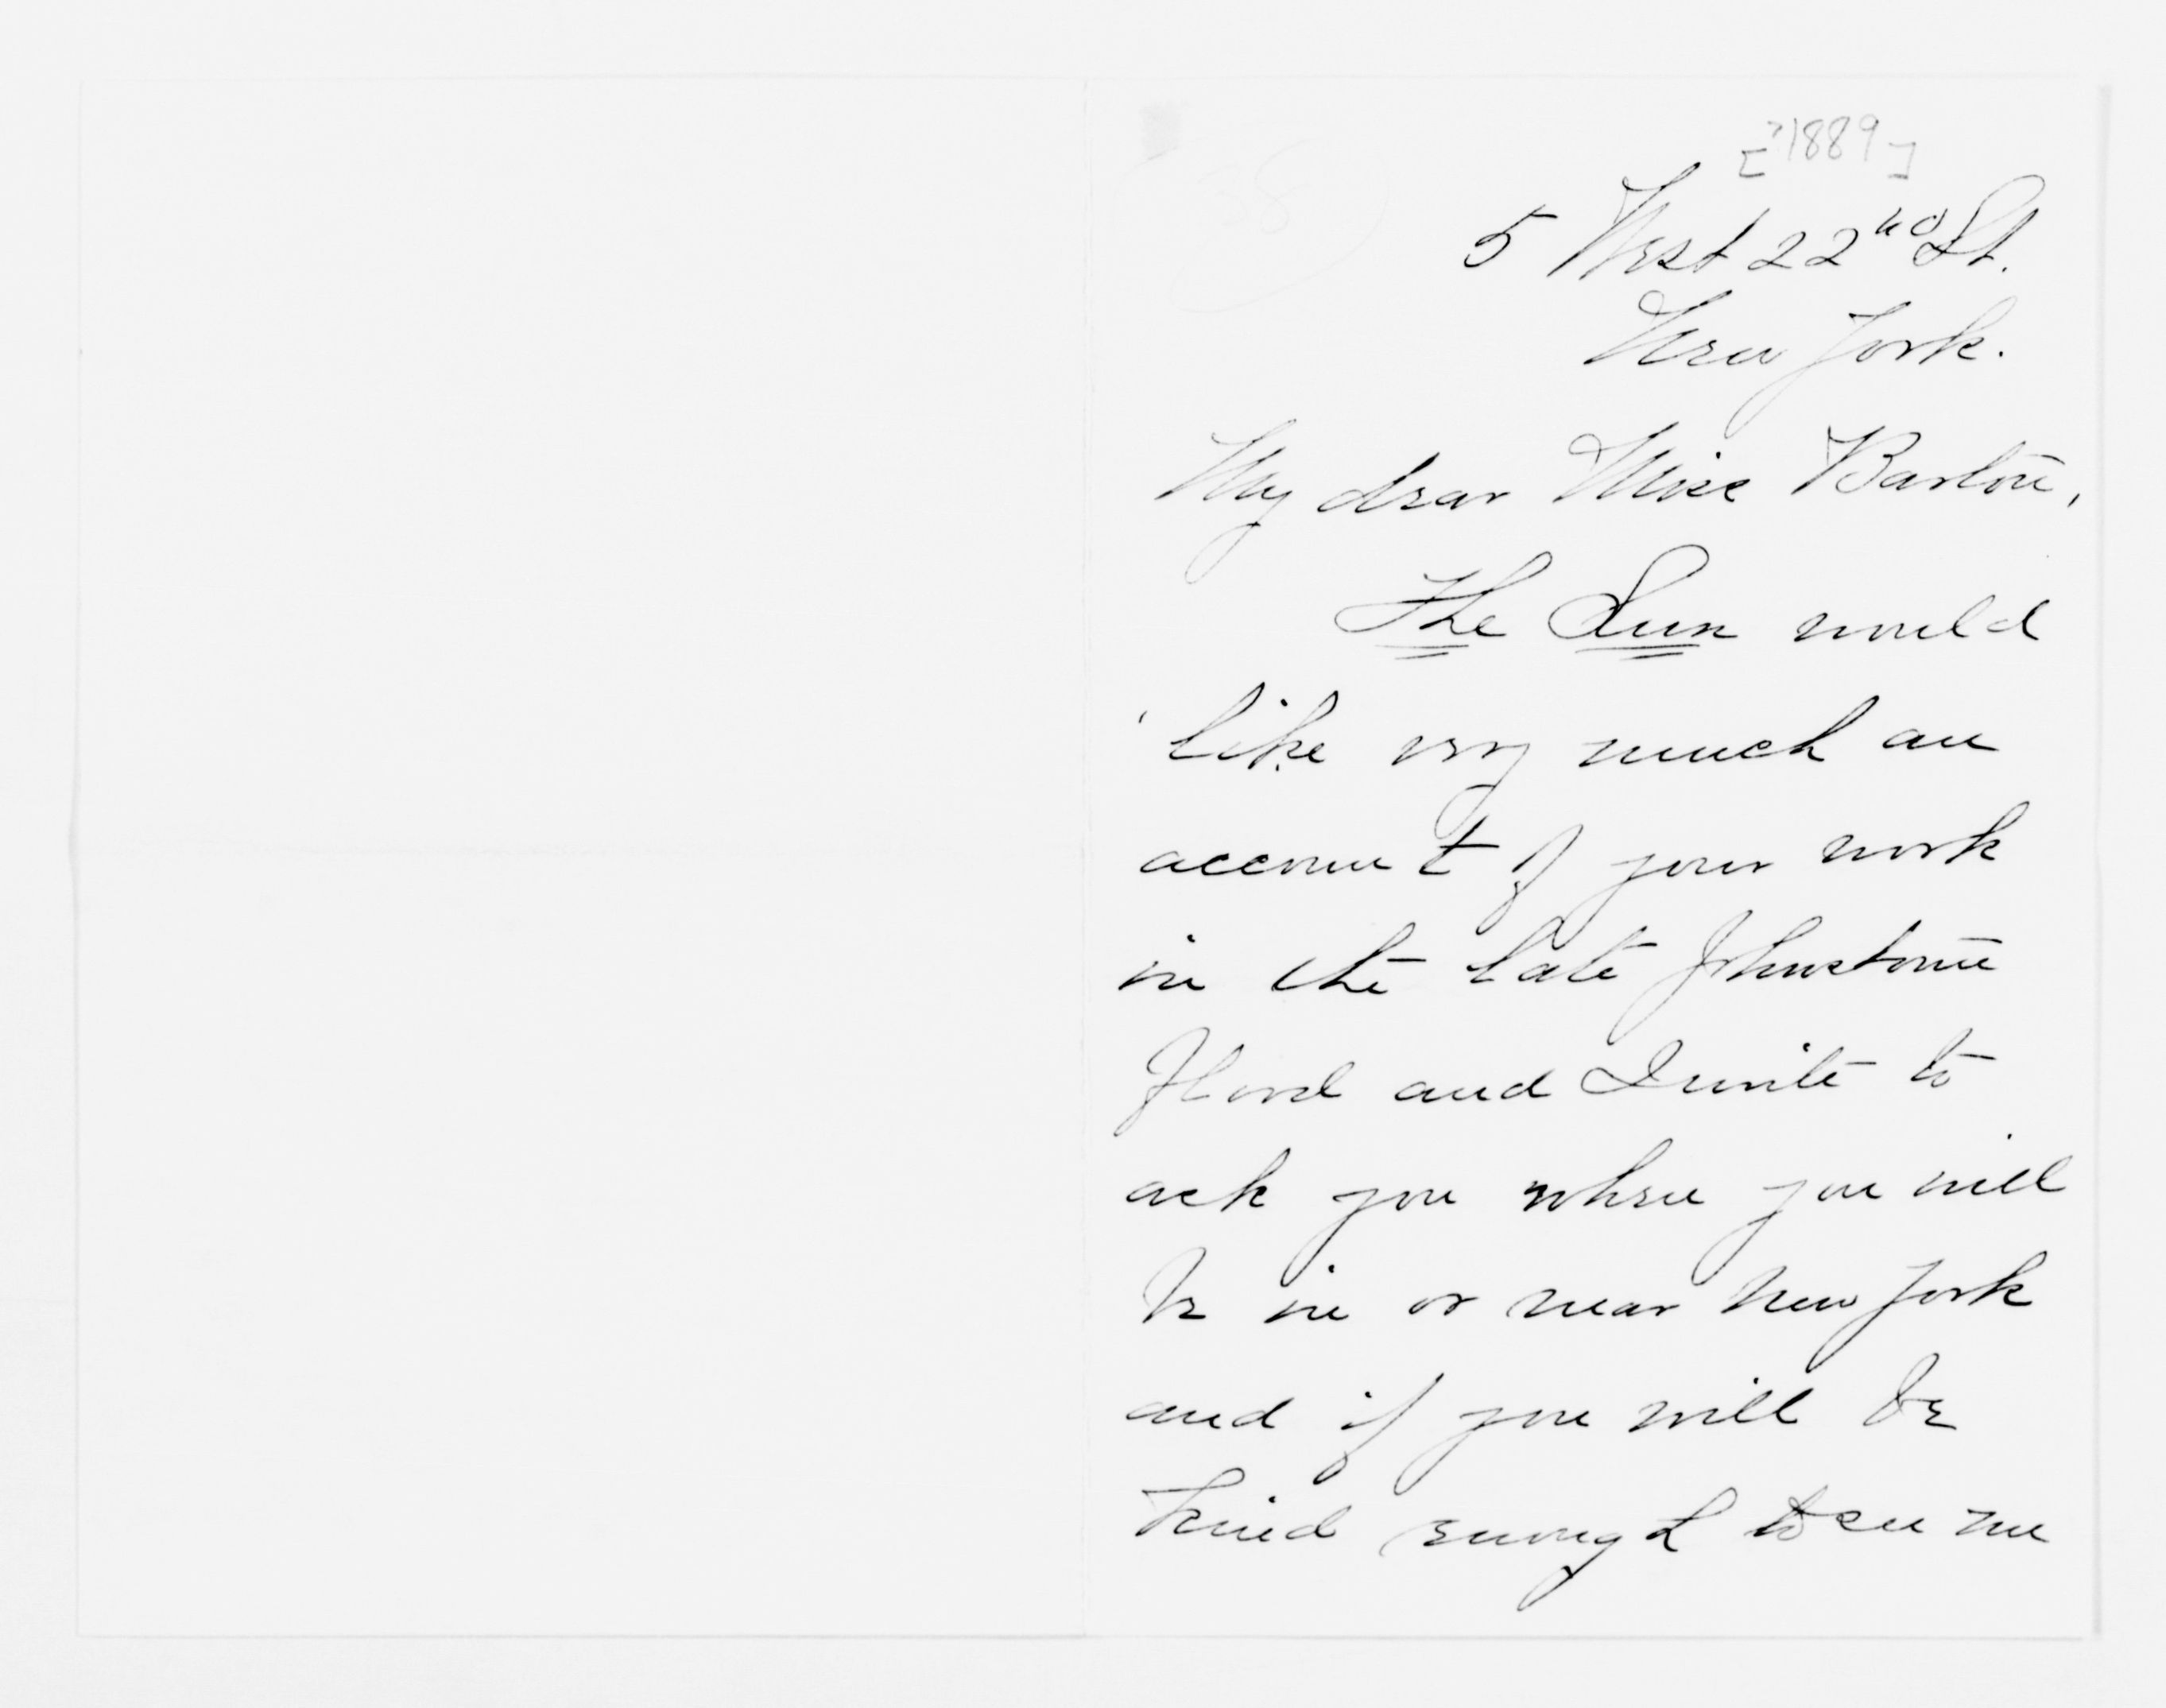 [?1889]
5 West 22nd St.
New York.
My dear Miss Barton,
The Sun would
like very much an
account of your work
in the late Johnstown
Flood and I write to
ask you when you will
be in or near New York
and if you will be
kind enough to see me